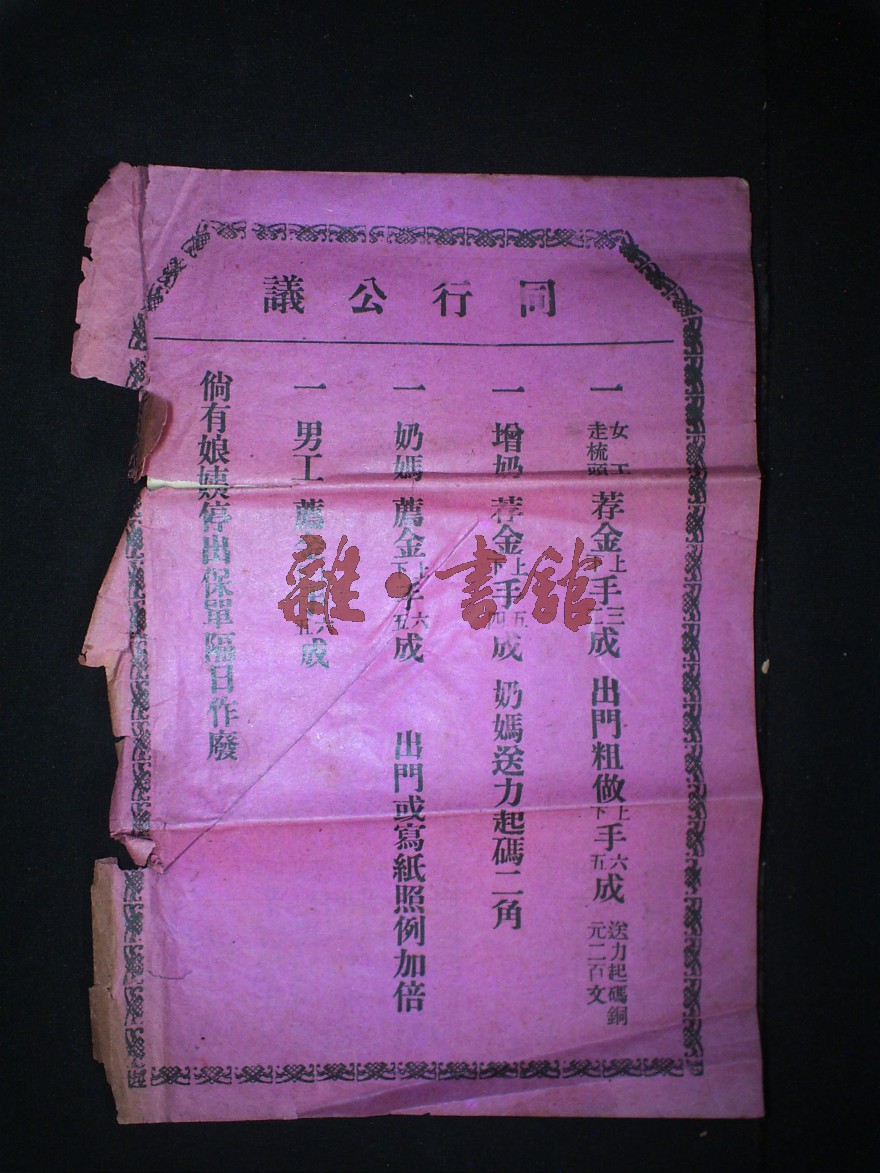 同行公議
一 女工走梳頭 荐金上下手三二成 出門粗做上下手六五成 送力起碼銅元二百文
一 增奶 荐金上下手五四成 奶媽送力起碼二角
一 奶媽 薦金上下手六五成 出門或寫紙照例加倍
一 男工 薦金 六五成
倘有娘姨停出保單隔日作廢
雜·書館